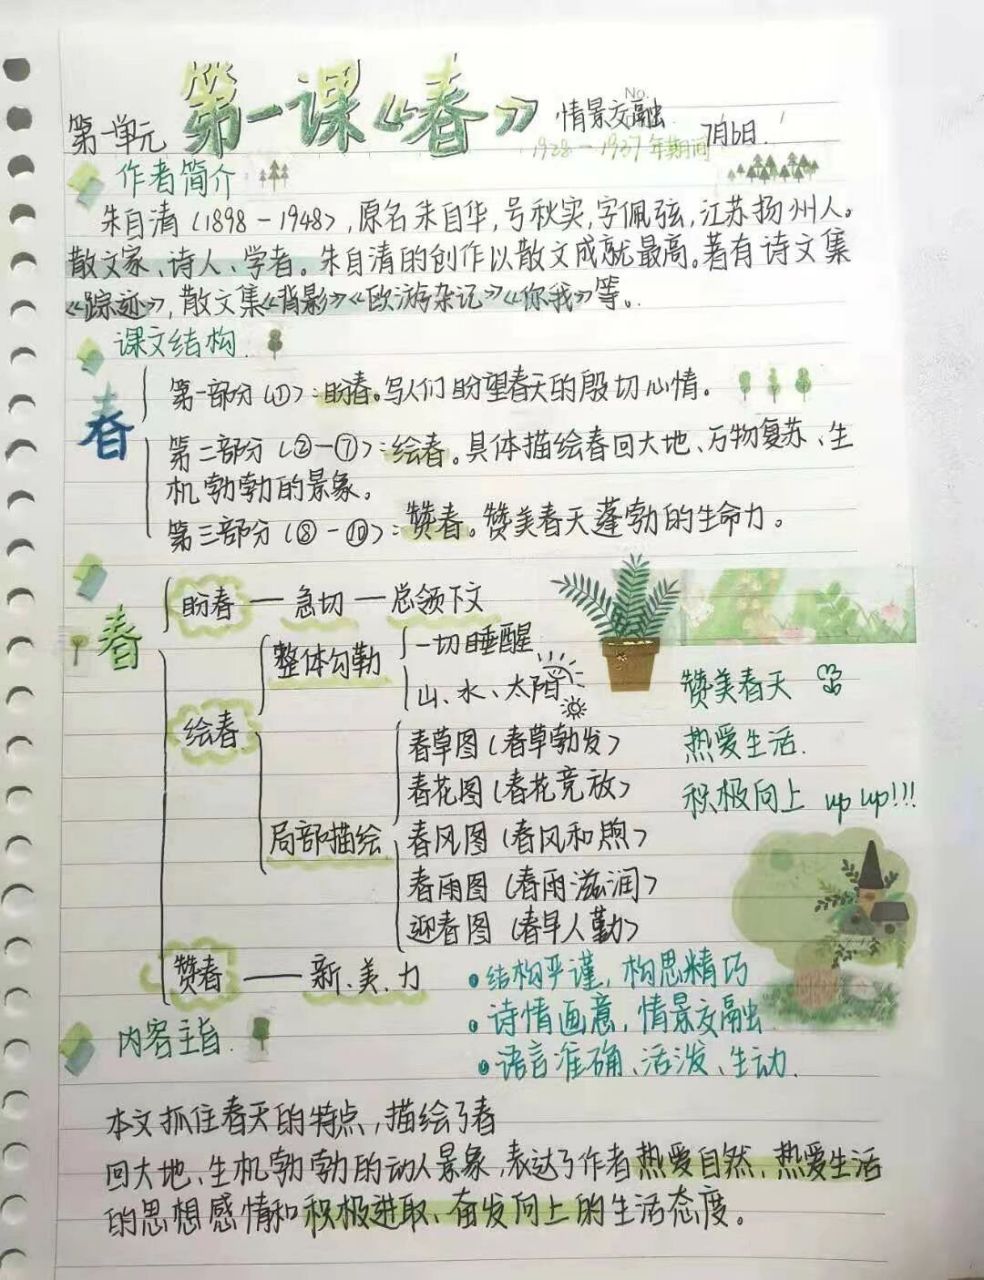 No.
第一单元 第一课《春》 情景交融
1928-1937年期间 7月6日.
作者简介
朱自清(1898-1948),原名朱自华,号秋实,字佩弦,江苏扬州人。
散文家、诗人、学者。朱自清的创作以散文成就最高。著有诗文集
《踪迹》,散文集《背影》《欧游杂记》《你我》等。
课文结构.
春
第一部分(①):盼春。写人们盼望春天的殷切心情。
第二部分(②-⑦):绘春。具体描绘春回大地、万物复苏、生
机勃勃的景象。
第三部分(⑧-⑩):赞春。赞美春天蓬勃的生命力。
春
盼春 — 急切 — 总领下文
绘春
整体勾勒
一切睡醒
山、水、太阳
局部描绘
春草图(春草勃发)
春花图(春花竞放)
春风图(春风和煦)
春雨图(春雨滋润)
迎春图(春早人勤)
赞春 — 新、美、力
赞美春天
热爱生活.
积极向上 up up!!!
•结构严谨,构思精巧
•诗情画意,情景交融
•语言准确、活泼、生动.
内容主旨.
本文抓住春天的特点,描绘了春
回大地、生机勃勃的动人景象,表达了作者热爱自然、热爱生活
的思想感情和积极进取、奋发向上的生活态度。